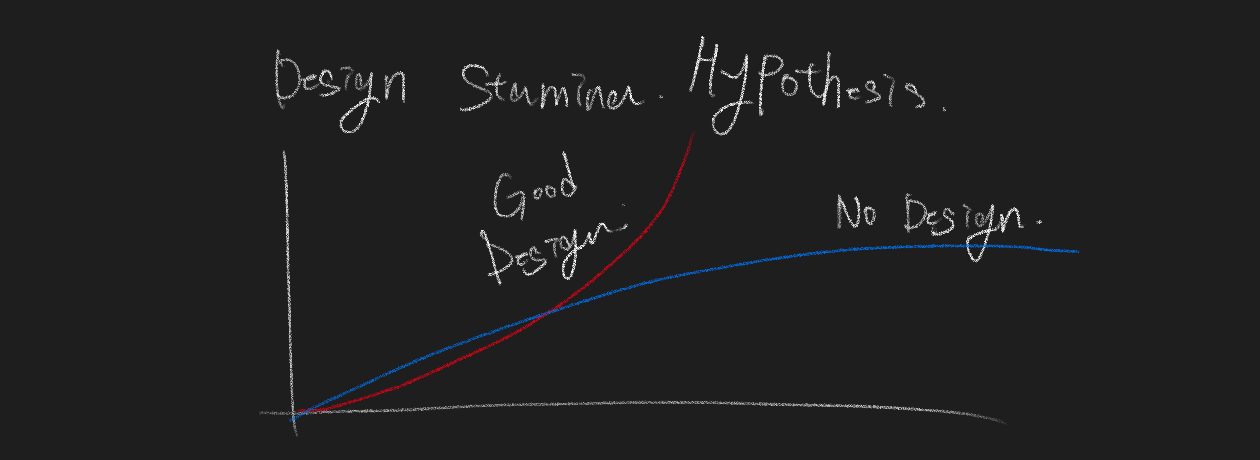 Design Stamina. Hypothesis.
Good
Design.
No Design.